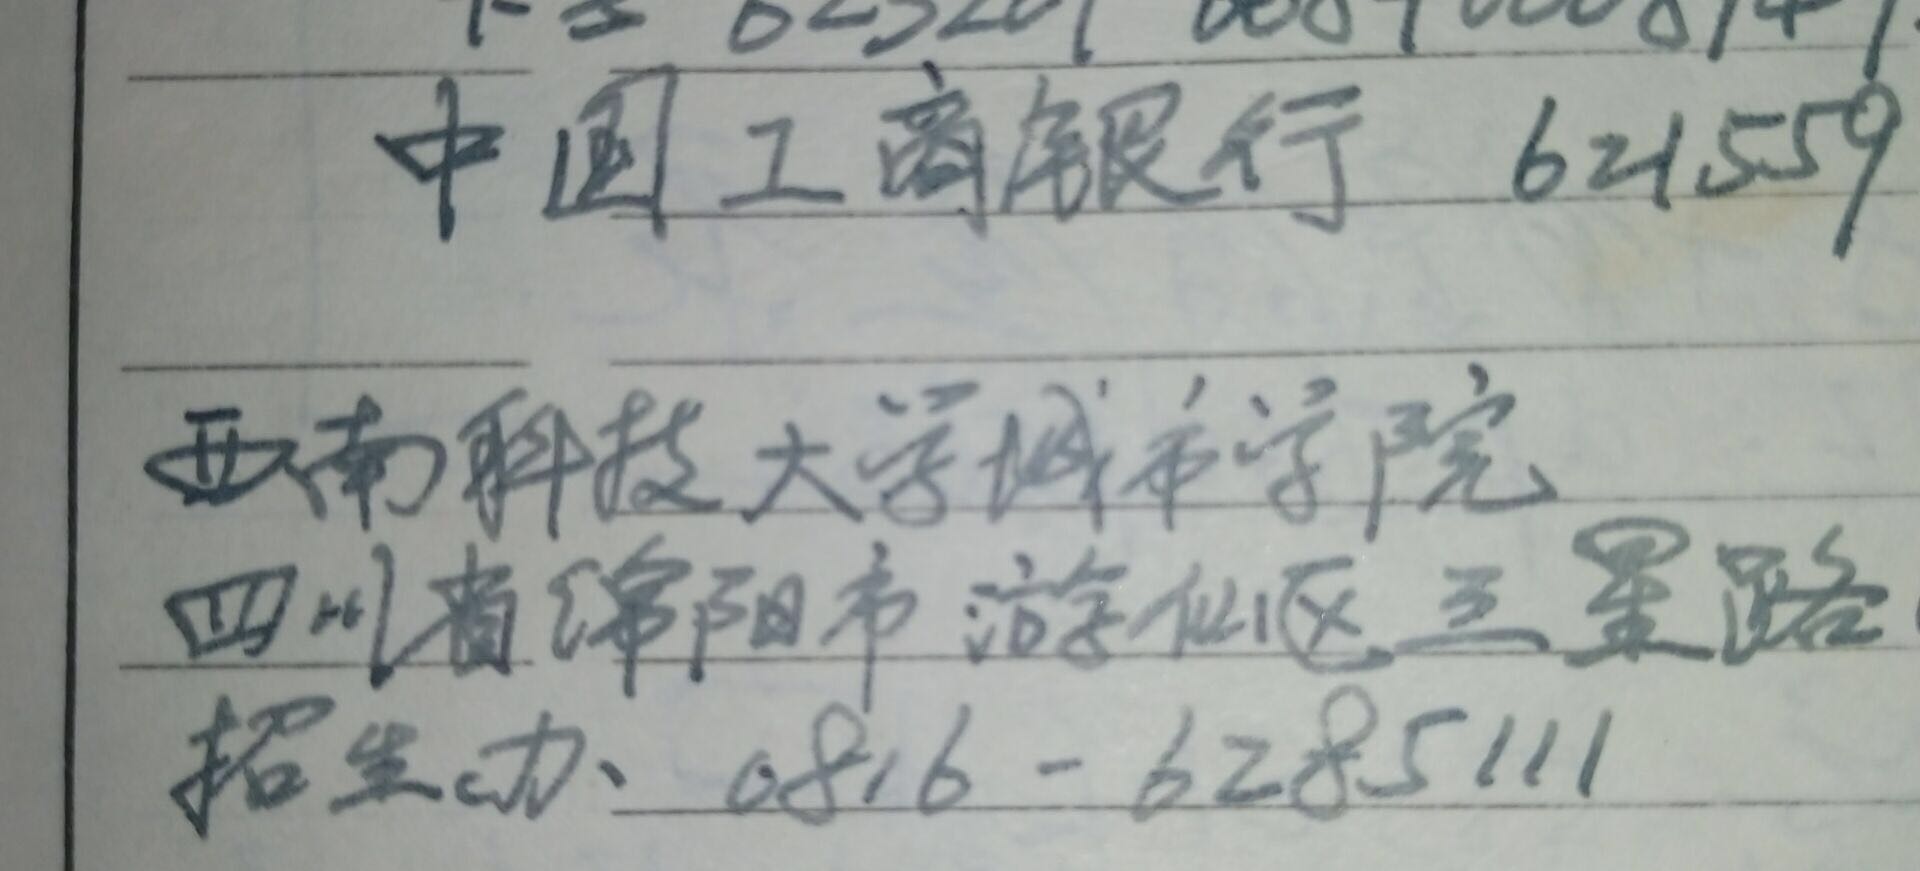 中国工商银行 621559
西南科技大学城市学院
四川省绵阳市游仙区三星路
招生办、0816-6285111